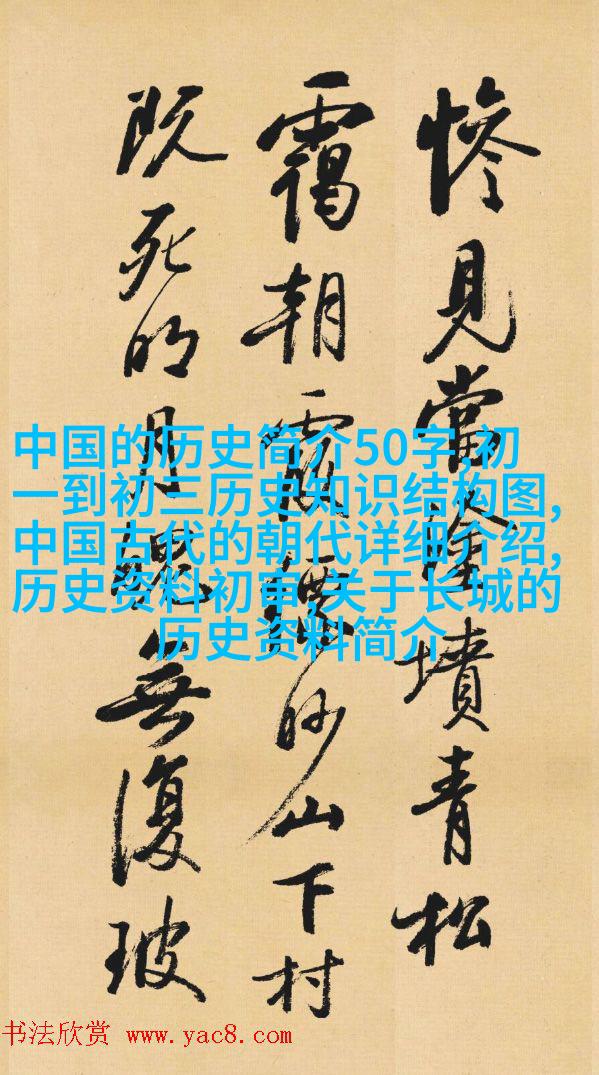 慘見當塗墳青松
靄朝霞縹眇山下村
既死明月魄無復玻
中国的历史简介50字,初
一到初三历史知识结构图,
中国古代的朝代详细介绍,
历史资料初审,关于长城的
历史资料简介
书法欣赏 www.yac8.com